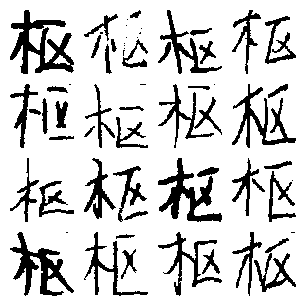 枢枢枢枢
枢枢枢枢
枢枢枢枢
枢枢枢枢